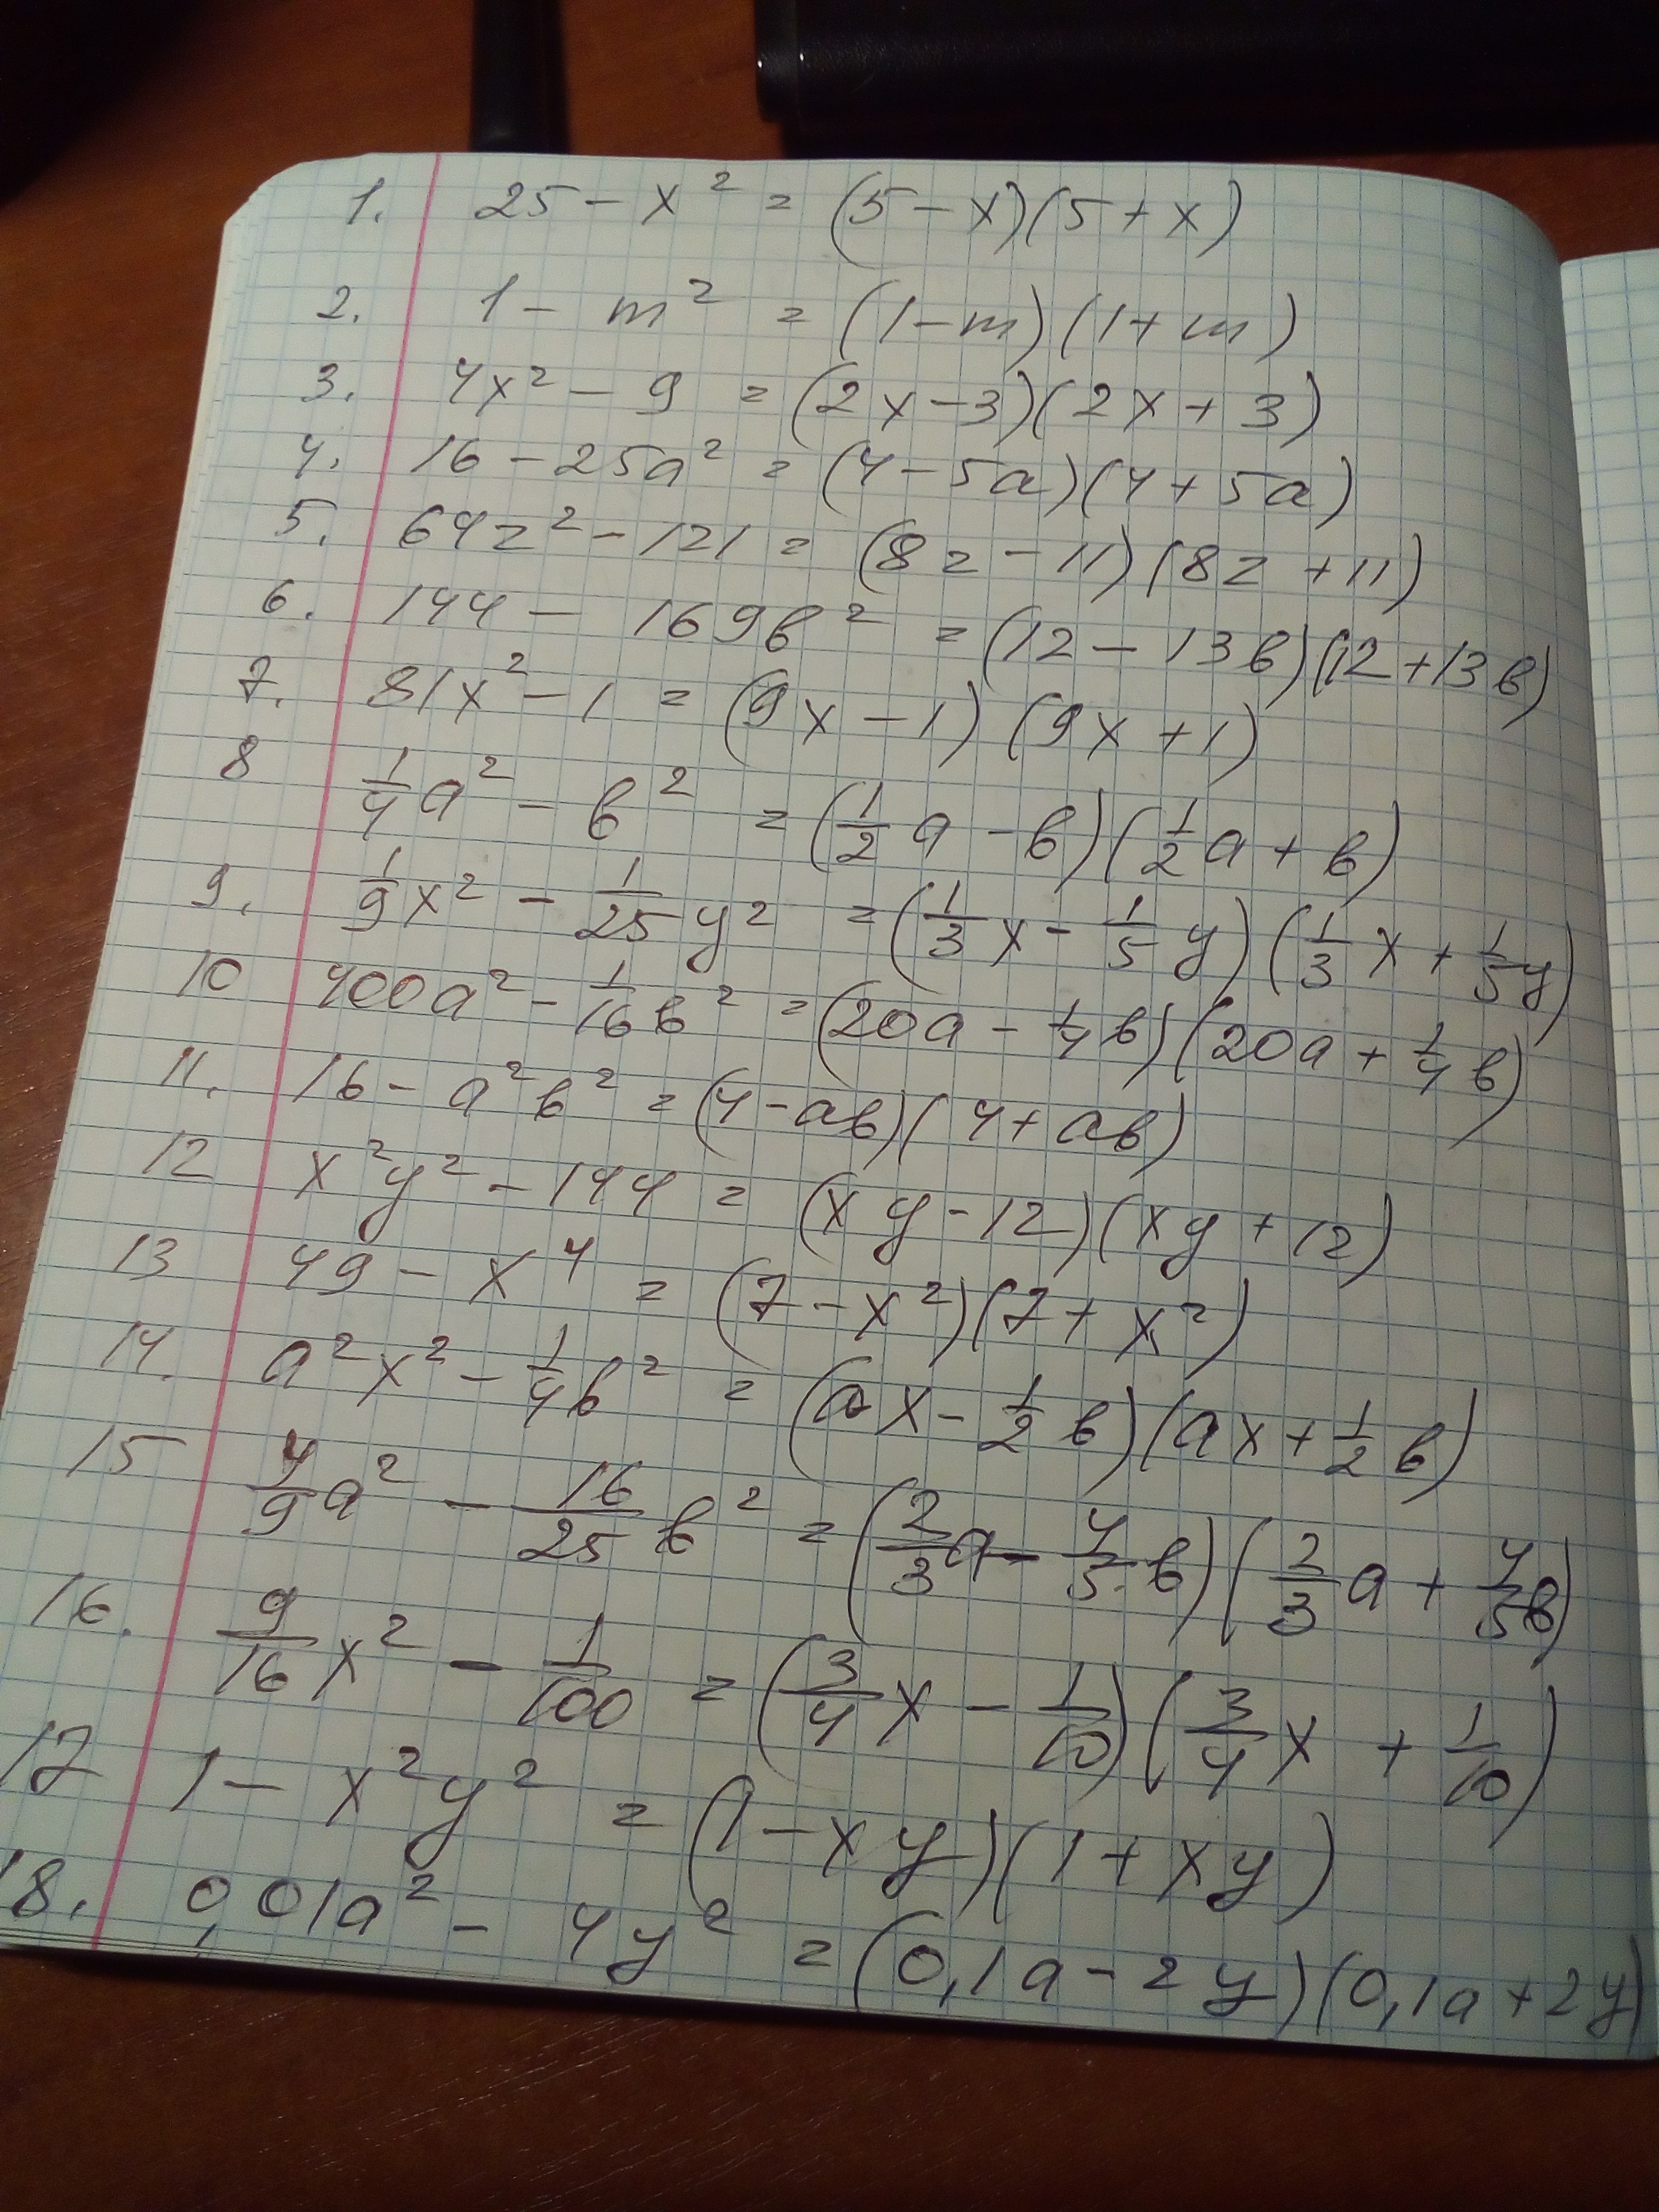 1. 25 - x² = (5 - x)(5 + x)
2. 1 - m² = (1 - m)(1 + m)
3. 4x² - 9 = (2x - 3)(2x + 3)
4. 16 - 25a² = (4 - 5a)(4 + 5a)
5. 64z² - 121 = (8z - 11)(8z + 11)
6. 144 - 169b² = (12 - 13b)(12 + 13b)
7. 81x² - 1 = (9x - 1)(9x + 1)
8 1/4 a² - b² = (1/2 a - b)(1/2 a + b)
9. 1/9 x² - 1/25 y² = (1/3 x - 1/5 y)(1/3 x + 1/5 y)
10 400a² - 1/16 b² = (20a - 1/4 b)(20a + 1/4 b)
11. 16 - a²b² = (4 - ab)(4 + ab)
12 x²y² - 144 = (xy - 12)(xy + 12)
13 49 - x⁴ = (7 - x²)(7 + x²)
14. a²x² - 1/4 b² = (ax - 1/2 b)(ax + 1/2 b)
15 4/9 a² - 16/25 b² = (2/3 a - 4/5 b)(2/3 a + 4/5 b)
16. 9/16 x² - 1/100 = (3/4 x - 1/10)(3/4 x + 1/10)
17 1 - x²y² = (1 - xy)(1 + xy)
18. 0,01a² - 4y² = (0,1a - 2y)(0,1a + 2y)